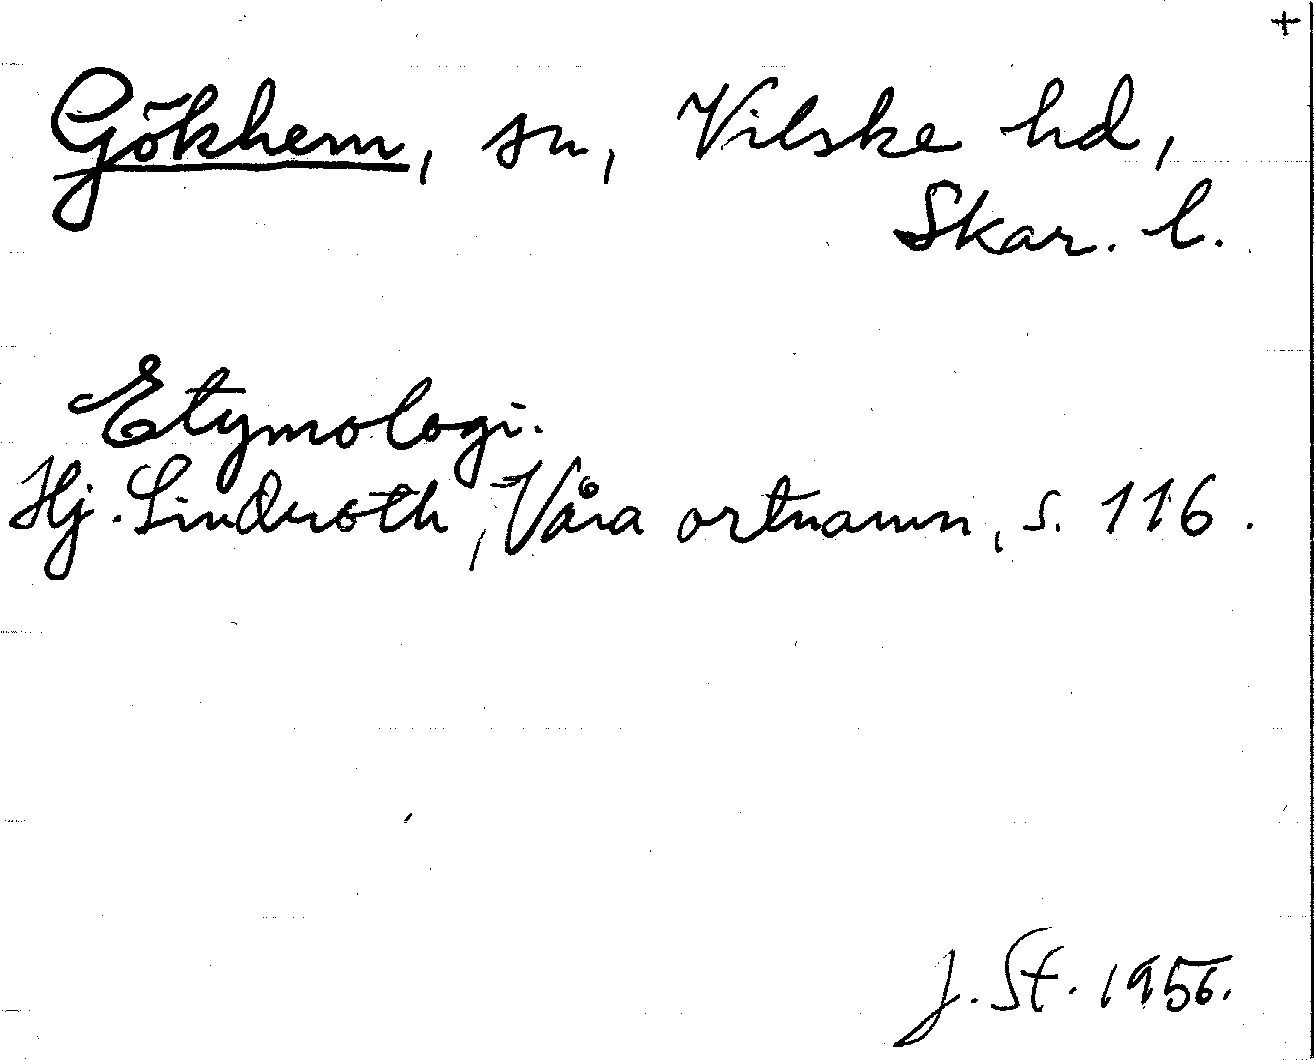 +
Gökhem, sn, Vilske hd,
Skar. l.
Etymologi.
Hj. Lindroth, Våra ortnamn, s. 116.
J. St. 1956.